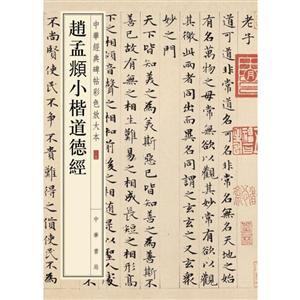 老子
道可道非常道名可名非常名無名天地之始
有名萬物之母常無欲以觀其妙常有欲以觀
其徼此兩者同出而異名同謂之玄玄之又玄眾
妙之門
天下皆知美之為美斯惡已皆知善之為善斯不
善已故有無之相生難易之相成長短之相形高
下之相傾音聲之相和前後之相隨
中華經典碑帖彩色放大本
趙孟頫小楷道德經
中華書局
不尚賢使民不爭不貴難得之